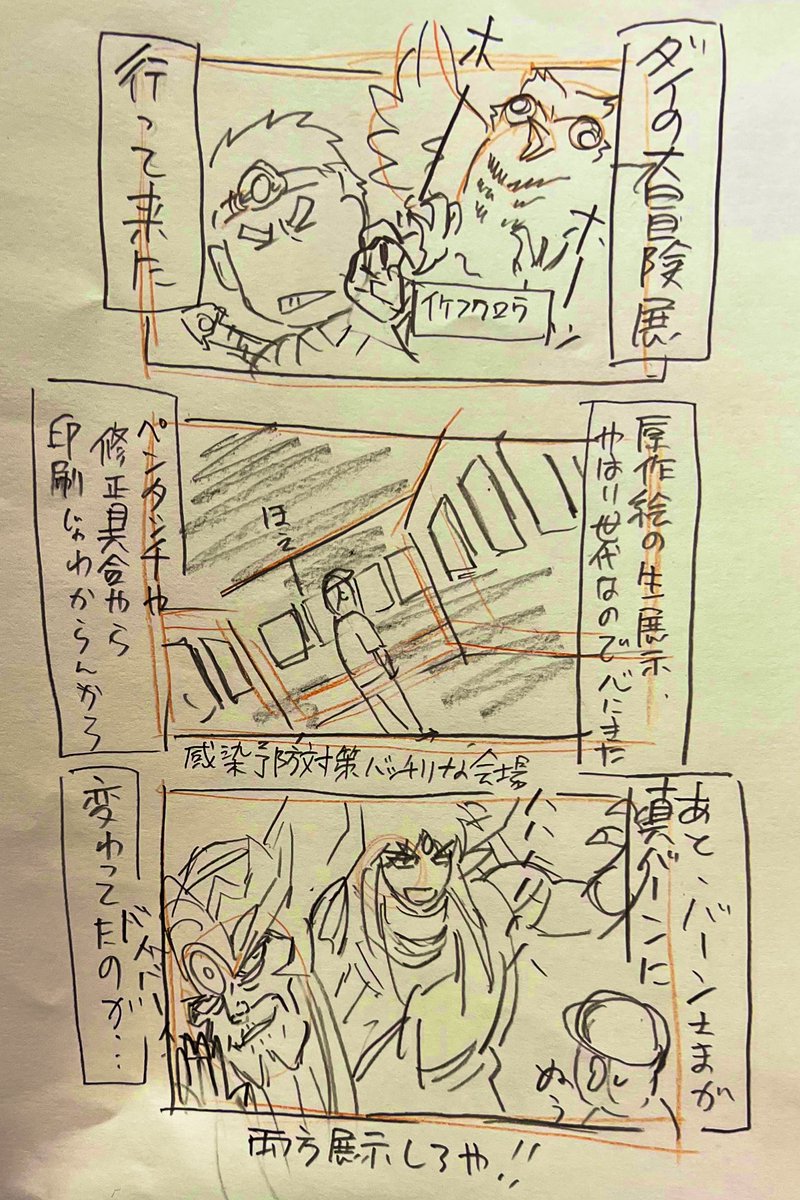 ダイの大冒険展
行って来た
ホ
ホーン
イケフクロウ
原作絵の生展示、
やはり世代なので心にきた
ほえ
ペンタッチや
修正具合やら
印刷じゃわからんかろ
感染予防対策バッチリな会場
あと、バーンさまが
真バーンに
変わってたのが…
ハハハハハ
ぬう
両方展示しろや!!